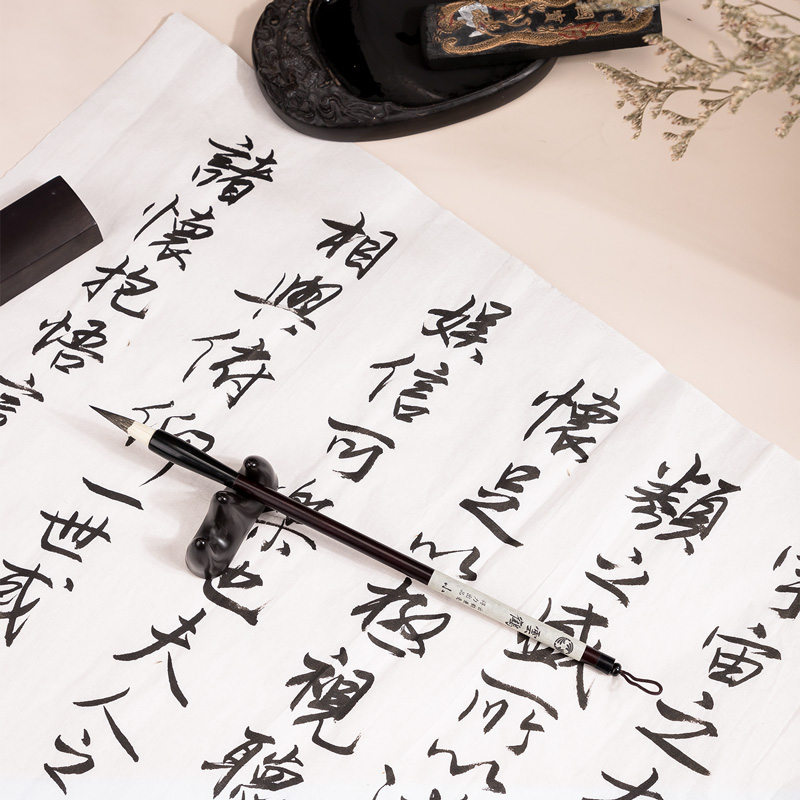 宇宙之大
類之盛所以
懷足以極視聽
娛信可樂也夫人之
相與俯仰一世或
諸懷抱悟言
雲鶴
小